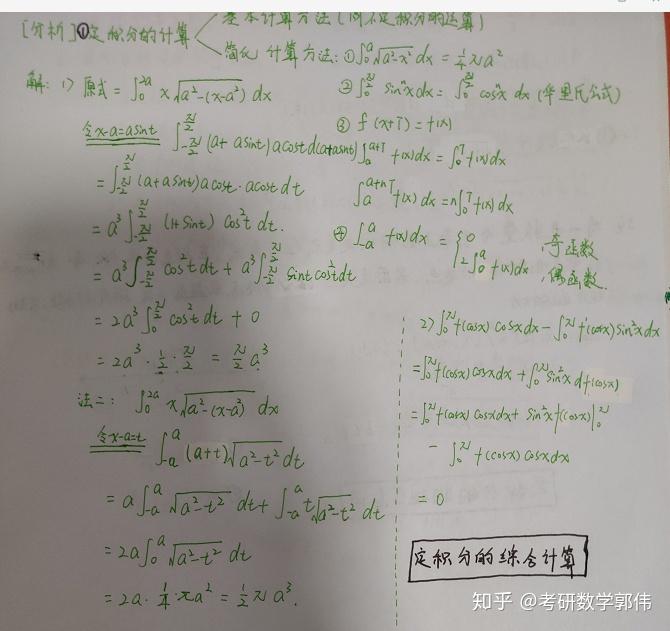 [分析] ①定积分的计算
基本计算方法(同不定积分的运算)
简化计算方法: ①∫₀ᵃ√(a²-x²) dx = ¼πa²
②∫₀^(π/2) sinⁿx dx = ∫₀^(π/2) cosⁿx dx (华里氏公式)
③ f(x+T) = f(x)
∫ₐ^(a+T) f(x) dx = ∫₀ᵀ f(x) dx
∫ₐ^(a+nT) f(x) dx = n∫₀ᵀ f(x) dx
④ ∫₋ₐᵃ f(x) dx = { 0 ,奇函数
2∫₀ᵃ f(x) dx ,偶函数.
解: 1) 原式 = ∫₀^(2a) x √(a²-(x-a²)) dx
令x-a=asint ∫_(-π/2)^(π/2) (a+asint) acost d(a+asint)
= ∫_(-π/2)^(π/2) (a+asint) acost · acost dt
= a³ ∫_(-π/2)^(π/2) (1+sint) cos²t dt.
= a³ ∫_(-π/2)^(π/2) cos²t dt + a³ ∫_(-π/2)^(π/2) sint cos²t dt
= 2a³ ∫₀^(π/2) cos²t dt + 0
= 2a³ · ½ · π/2 = π/2 a³.
法二: ∫₀^(2a) x √(a²-(x-a²)) dx
令x-a=t ∫₋ₐᵃ (a+t) √(a²-t²) dt
= a ∫₋ₐᵃ √(a²-t²) dt + ∫₋ₐᵃ t √(a²-t²) dt
= 2a ∫₀ᵃ √(a²-t²) dt
= 2a · ¼ · πa² = ½πa³.
2) ∫₀^π f(cosx) cosx dx - ∫₀^π f'(cosx) sin²x dx
= ∫₀^π f(cosx) cosx dx + ∫₀^π sin²x df(cosx)
= ∫₀^π f(cosx) cosx dx + sin²x f(cosx) |₀^π
- ∫₀^π f(cosx) cosx dx
= 0
定积分的综合计算
知乎 @考研数学郭伟